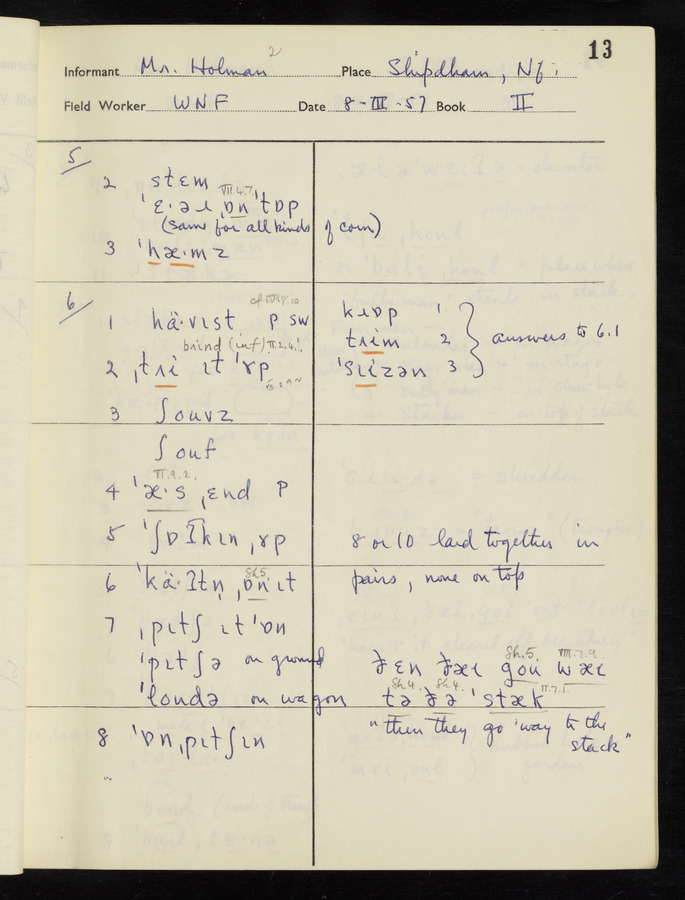 13
2
Informant Mr. Holman Place Shipdham, Nf.
Field Worker WNF Date 8-III-57 Book II
5
2 stɛm
VII.4.7.
ˈɛ·əɹ ˌɒn ˈtɒp
(same for all kinds of corn)
3 ˈhæ·mz
6
1 hä·vɪst p sw
bind (inf) II.2.4.
2 ˌtɹi ɪt ˈɤp
3 ʃouvz
ʃouf
VI.9.2.
4 ˈæ·s ˌɛnd p
5 ˈʃɒʔkɪn ˌɤp
Sh.5
6 ˈkä·ʔtn̩ ˌɒn ɪt
7 ˌpɪtʃ ɪt ˈɒn
ˈpɪtʃə on ground
ˈloudə on wagon
8 ˈɒn ˌpɪtʃɪn
kɹɒp 1
tɹim 2
ˈsɪizən 3
answers to 6.1
8 or 10 laid together in
pairs, none on top
Sh.5. VIII.7.9.
ðɛn ðæɪ gou wæɪ
Sh4. Sh4. II.7.1.
tə ðə ˈstæk
"then they go 'way to the
stack"